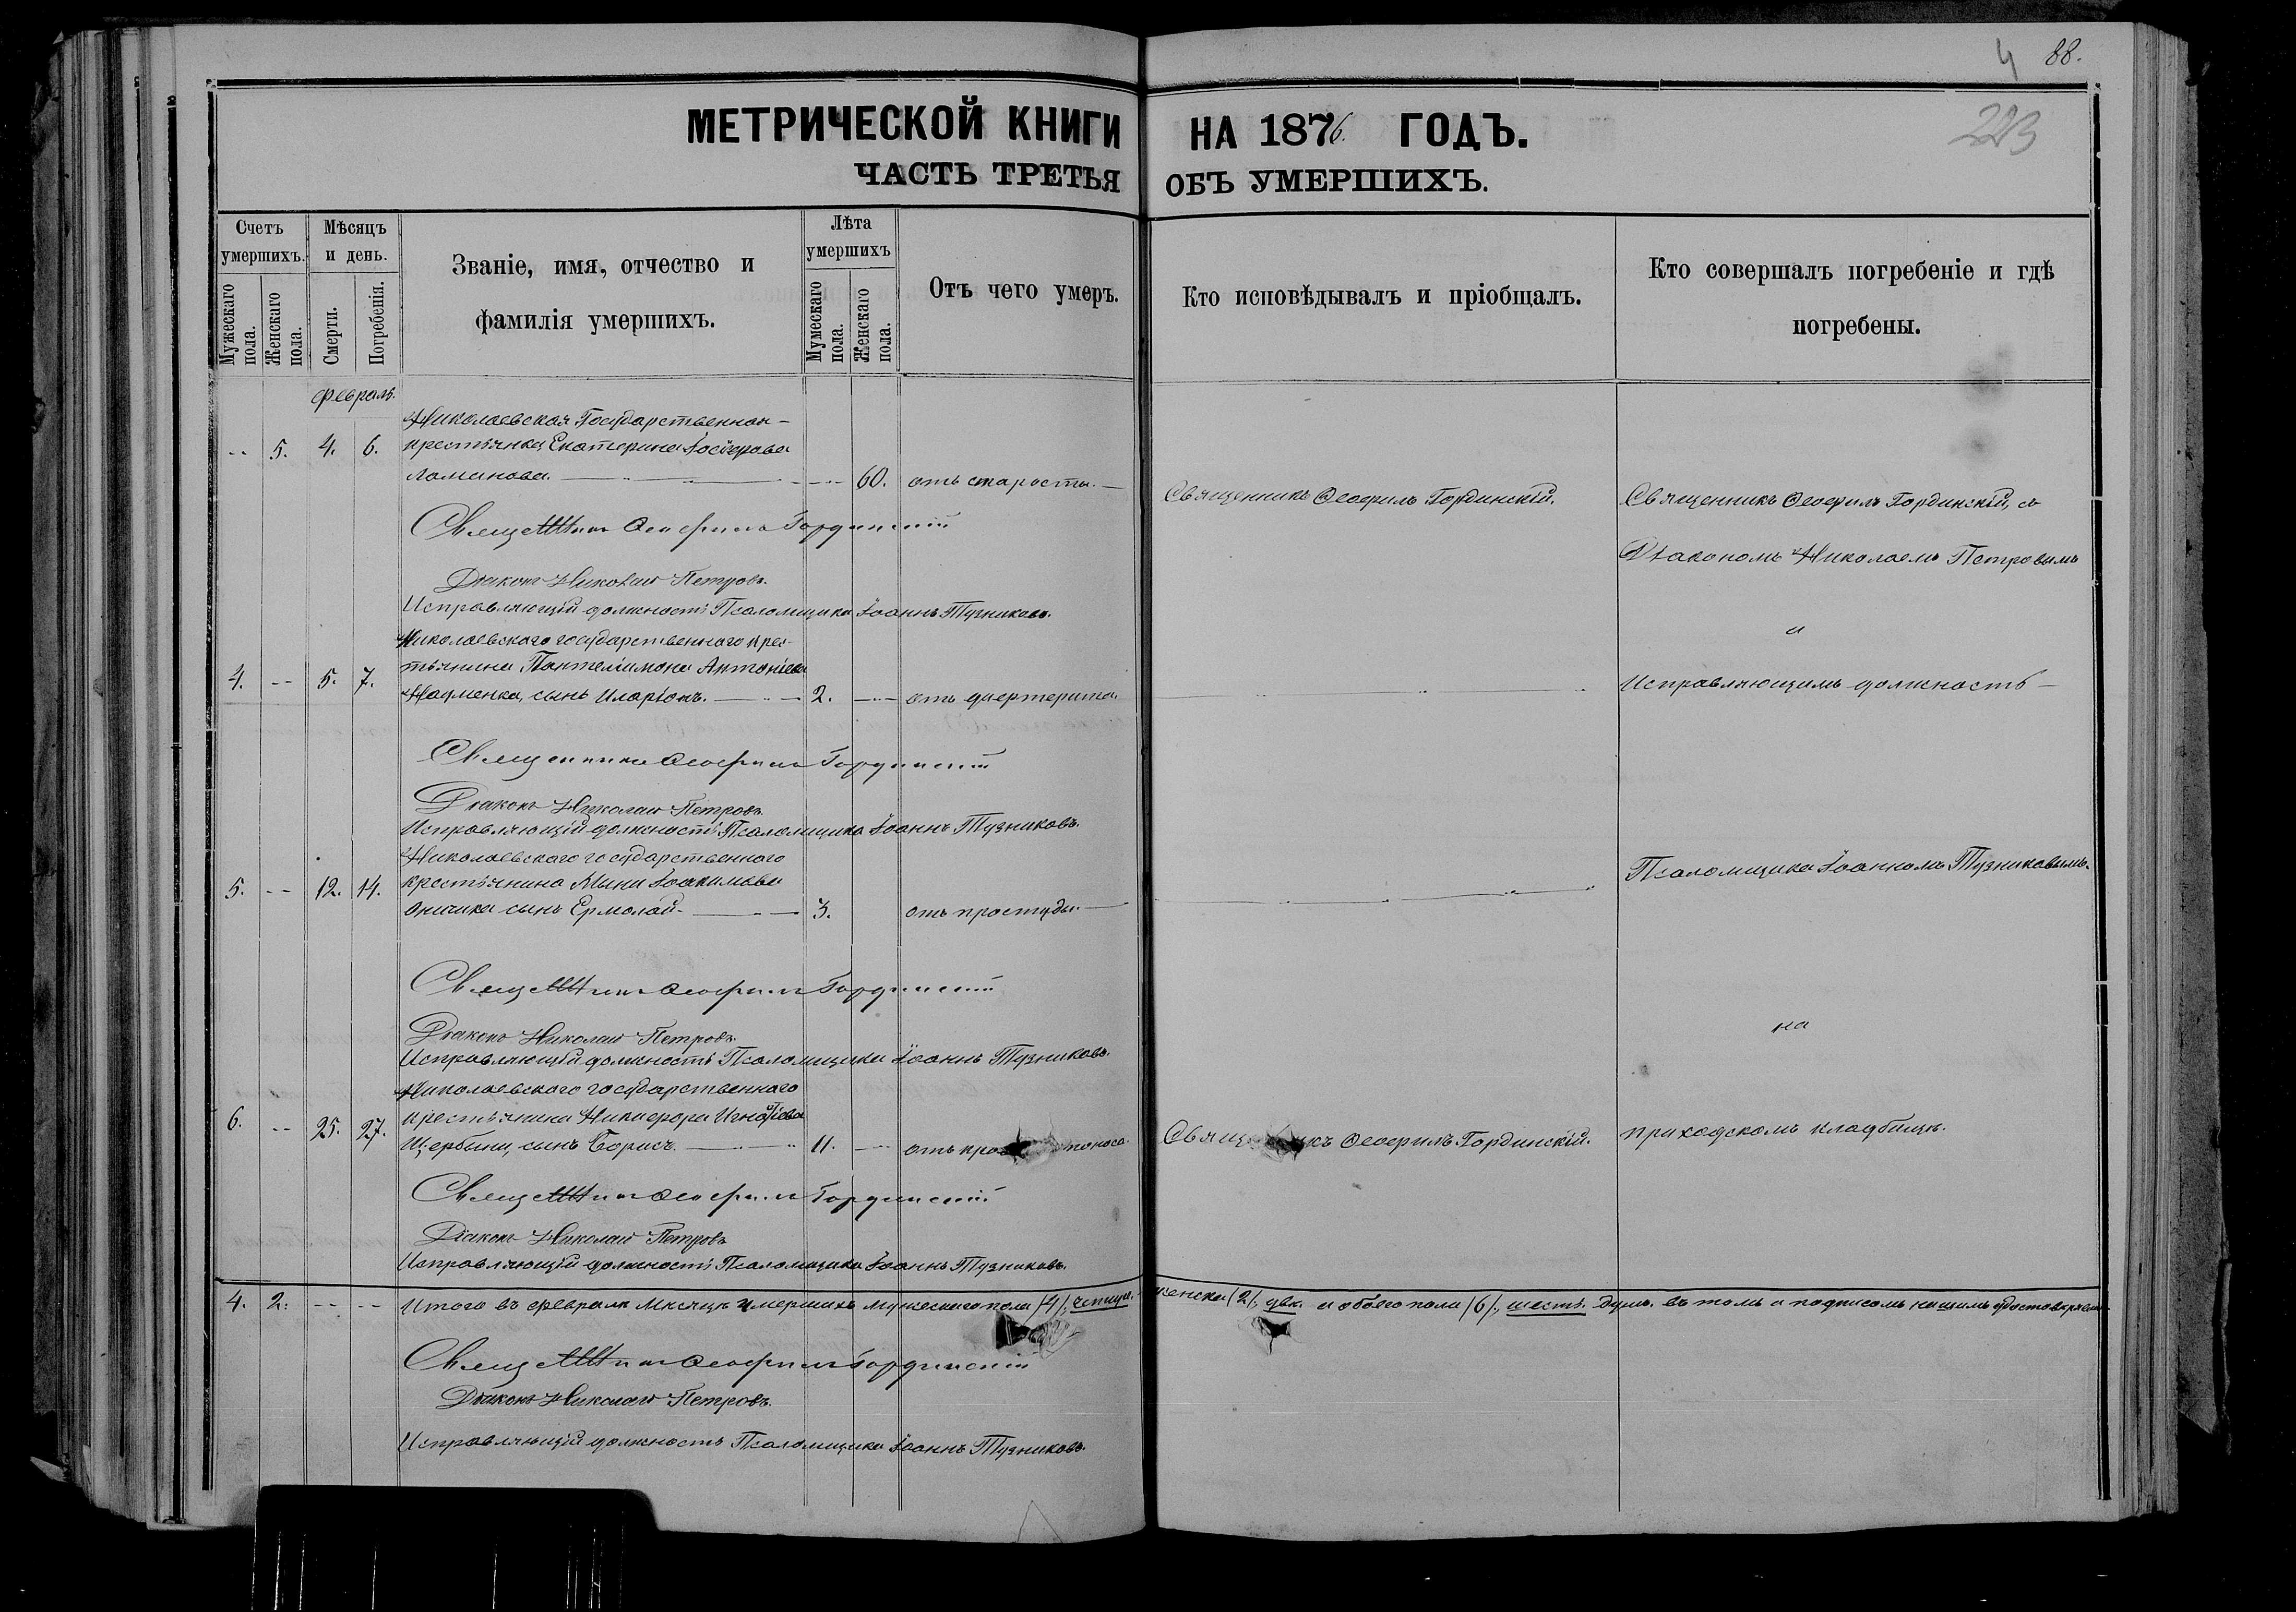 4 88.
223
МЕТРИЧЕСКОЙ КНИГИ НА 1876. ГОДЪ.
ЧАСТЬ ТРЕТЬЯ ОБЪ УМЕРШИХЪ.
Счетъ умершихъ.
Мужескаго пола.
Женскаго пола.
Мѣсяцъ и день.
Смерти.
Погребенія.
Званіе, имя, отчество и
фамилія умершихъ.
Лѣта умершихъ
Мужескаго пола.
Женскаго пола.
Отъ чего умеръ.
Кто исповѣдывалъ и пріобщалъ.
Кто совершалъ погребеніе и гдѣ
погребены.
Февраль.
Николаевская Государственная
-- 5. 4. 6. крестьянка Екатерина
Ломанова. 60. отъ старости.
Священникъ Ѳеофилъ Гординскій.
Священникъ Ѳеофилъ Гординскій, съ
Священникъ Ѳеофилъ Гординскій
Діакономъ Николаемъ Петровымъ
Діаконъ Николай Петровъ.
Исправляющій должность Псаломщика Іоаннъ Тузниковъ.
и
Николаевскаго государственнаго крес-
4. -- 5. 7. тьянина Пантелимона Антоніева
Науменка, сынъ Иларіонъ. 2. отъ дифтерита.
Исправляющимъ должность
Священникъ Ѳеофилъ Гординскій
Діаконъ Николай Петровъ.
Исправляющій должность Псаломщика Іоаннъ Тузниковъ.
Николаевскаго государственнаго
5. -- 12. 14. крестьянина Мины Іоакимова
Оничика сынъ Ермолай. 3. отъ простуды.
Псаломщика Іоанномъ Тузниковымъ.
Священникъ Ѳеофилъ Гординскій
Діаконъ Николай Петровъ.
Исправляющій должность Псаломщика Іоаннъ Тузниковъ.
на
Николаевскаго государственнаго
6. -- 25. 27. крестьянина Никифора Игнатіева
Щербины, сынъ Борисъ. 11. отъ
Священникъ Ѳеофилъ Гординскій.
приходскомъ кладбищѣ.
Священникъ Ѳеофилъ Гординскій
Діаконъ Николай Петровъ
Исправляющій должность Псаломщика Іоаннъ Тузниковъ.
4. 2. -- -- Итого въ февралѣ мѣсяцѣ умершихъ мужескаго пола /4/, четыре. женска /2/, двѣ. и обоего пола /6/, шесть. душъ. въ томъ и подписомъ нашимъ удостовѣряемъ
Священникъ Ѳеофилъ Гординскій
Діаконъ Николай Петровъ.
Исправляющій должность Псаломщика Іоаннъ Тузниковъ.